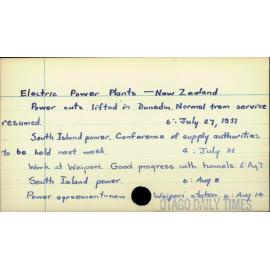 Electric Power Plants — New Zealand
Power cuts lifted in Dunedin. Normal tram service
resumed. 6: July 27, 1951
South Island power. Conference of supply authorities
to be held next week. 4: July 31
Work at Waipori. Good progress with tunnels. 6: Ag 7
South Island power. 6: Aug 8
Power agreement—new Waipori station. 6: Aug 14
OTAGO DAILY TIMES